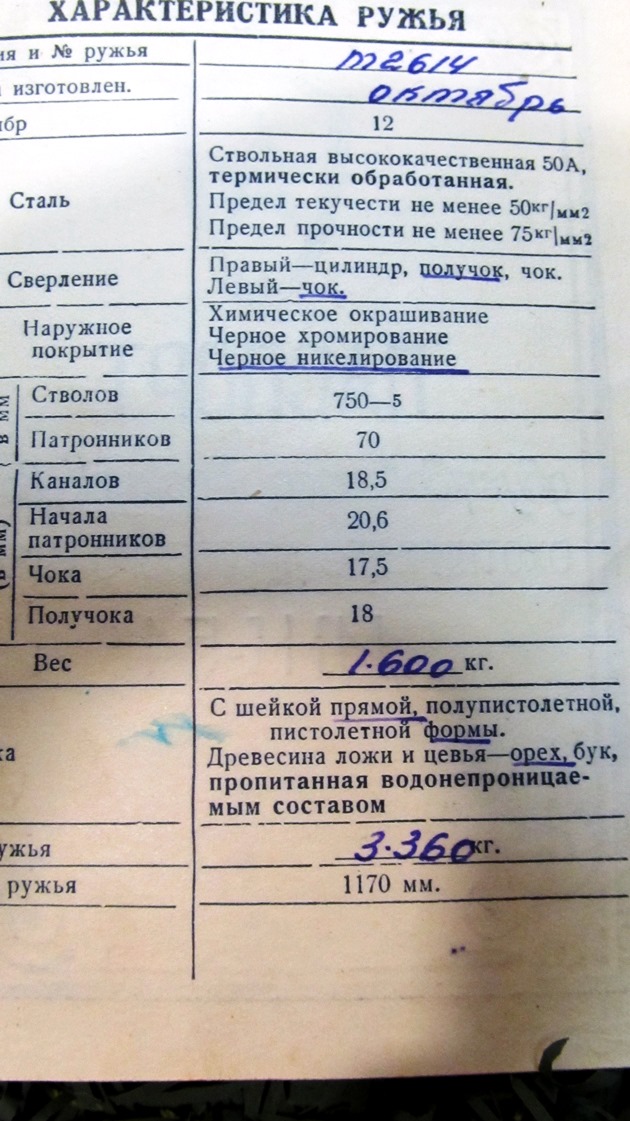 ХАРАКТЕРИСТИКА РУЖЬЯ
ия и № ружья т2614
изготовлен. октябрь
ибр 12
Сталь
Ствольная высококачественная 50А,
термически обработанная.
Предел текучести не менее 50кг/мм2
Предел прочности не менее 75кг/мм2
Сверление
Правый—цилиндр, получок, чок.
Левый—чок.
Наружное
покрытие
Химическое окрашивание
Черное хромирование
Черное никелирование
в мм
Стволов 750—5
Патронников 70
(в мм)
Каналов 18,5
Начала
патронников 20,6
Чока 17,5
Получока 18
Вес 1.600 кг.
ка
С шейкой прямой, полупистолетной,
пистолетной формы.
Древесина ложи и цевья—орех, бук,
пропитанная водонепроницае-
мым составом
ужья 3.360 кг.
ружья 1170 мм.